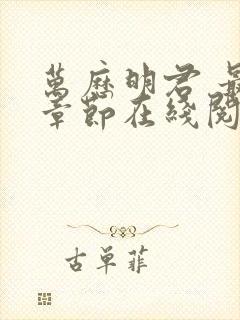 萬歷明君 最
章節在綫閱
古單菲